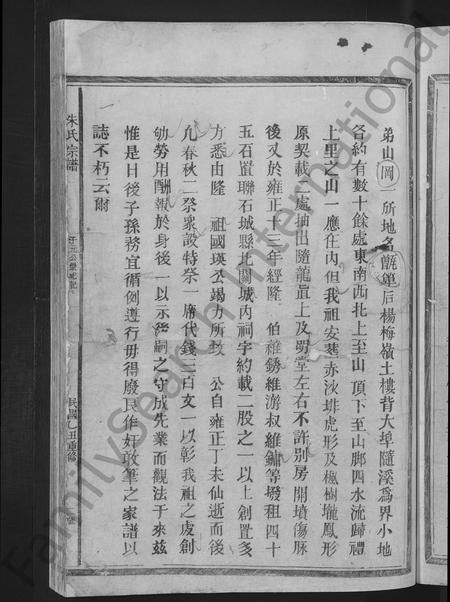 弟山岡一所地名甑箄后楊梅嶺土樓背大埠隨溪為界小地
各約有數十餘處東南西北上至山頂下至山脚四水流歸禮
上里之山一應在內但我祖安塟赤沙堋虎形及楓樹壠鳳形
原契載二處抽出隨龍直上及蜀堂左右不許別房開墳傷脉
後又於雍正十三年經隆 伯維銹維游叔維鏞等墢租四十
五石置聯石城縣北關城內祠宇約載二股之一以上創置多
方悉由隆 祖國瑛公竭力所致 公自雍正丁未仙逝而後
凡春秋二祭衆設特祭一席代錢三百文一以彰我祖之處創
劬勞用酬報於身後一以示後嗣之守成先業而觀法于來兹
惟是日後子孫務宜循例遵行毋得廢民作奸敢筆之家譜以
誌不朽云爾
朱氏宗譜
公祭祀記
民國乙丑重修
FamilySearch International